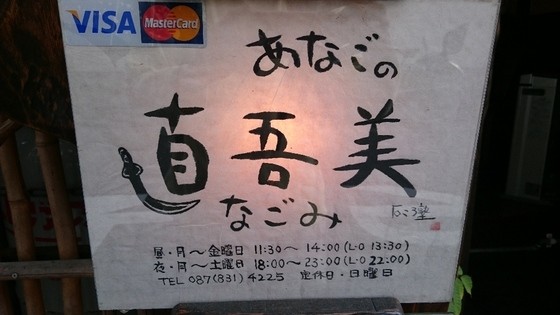 VISA MasterCard
あなごの
直吾美
なごみ
昼・月～金曜日 11:30～14:00(L・O 13:30)
夜・月～土曜日 18:00～23:00(L・O 22:00)
TEL 087(831)4225 定休日・日曜日